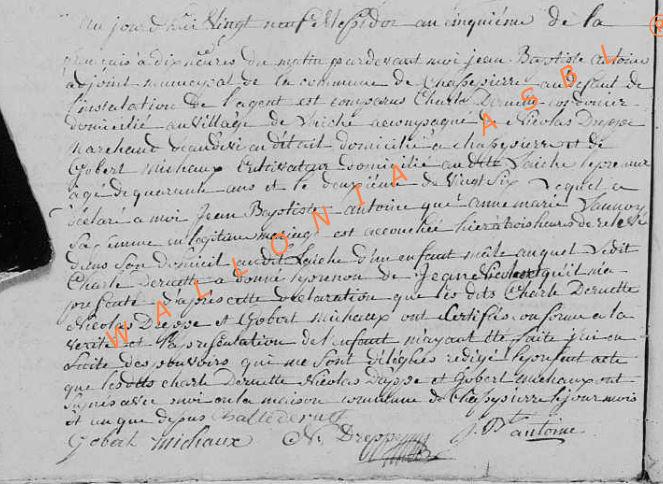 aujourd'hui vingt neuf Messidor au cinquième de la
à dix heures du matin pardevant moi jean Baptiste antoine
adjoint municipal de la commune de Chassepierre au defaut de
l'instalation de l'agent est comparus Charle Dernette cordonier
domicilié au village de laiche acompagné de Nicolas Dreppe
marchand domicilié a chassepierre et de
Gobert michaux Cultivateur domicilié au dit Laiche le premier
agé de quarante ans et le deuxième de vingt six lequel a
déclaré a moi Jean Baptiste antoine que anne marie
Sa femme en légitime mariage est accouchée hier à trois heures de relevé
dans son domicil au dit Laiche d'un enfant mâle auquel ledit
Charle Dernette a donné le prenon de Jean Nicolas et qu'il m'a
présenté d'après cette déclaration que les dits Charle Dernette
Nicolas Dreppe et Gobert michaux ont certifiés conforme a la
verité et la représentation de l'enfant m'ayant été faite j'ai en
suite des pouvoirs qui me sont délégués redigé le présent acte
que les dits charle Dernette Nicolas Dreppe et Gobert michaux ont
signés avec moi en la maison commune de Chassepierre le jour mois
et an que dessus
Gobert michaux N. Dreppe J. Bt antoine
WALLONIA ASBL ®